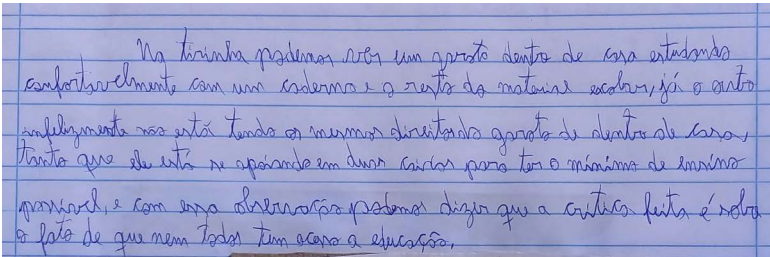 Na tirinha podemos ver um garoto dentro de casa estudando
confortavelmente com um caderno e o resto do material escolar, já o outro
infelizmente não está tendo os mesmos direitos do garoto de dentro de casa,
tanto que ele está se apoiando em duas caixas para ter o mínimo de ensino
possível, e com essa observação podemos dizer que a crítica feita é sobre
o fato de que nem todos tem acesso a educação.